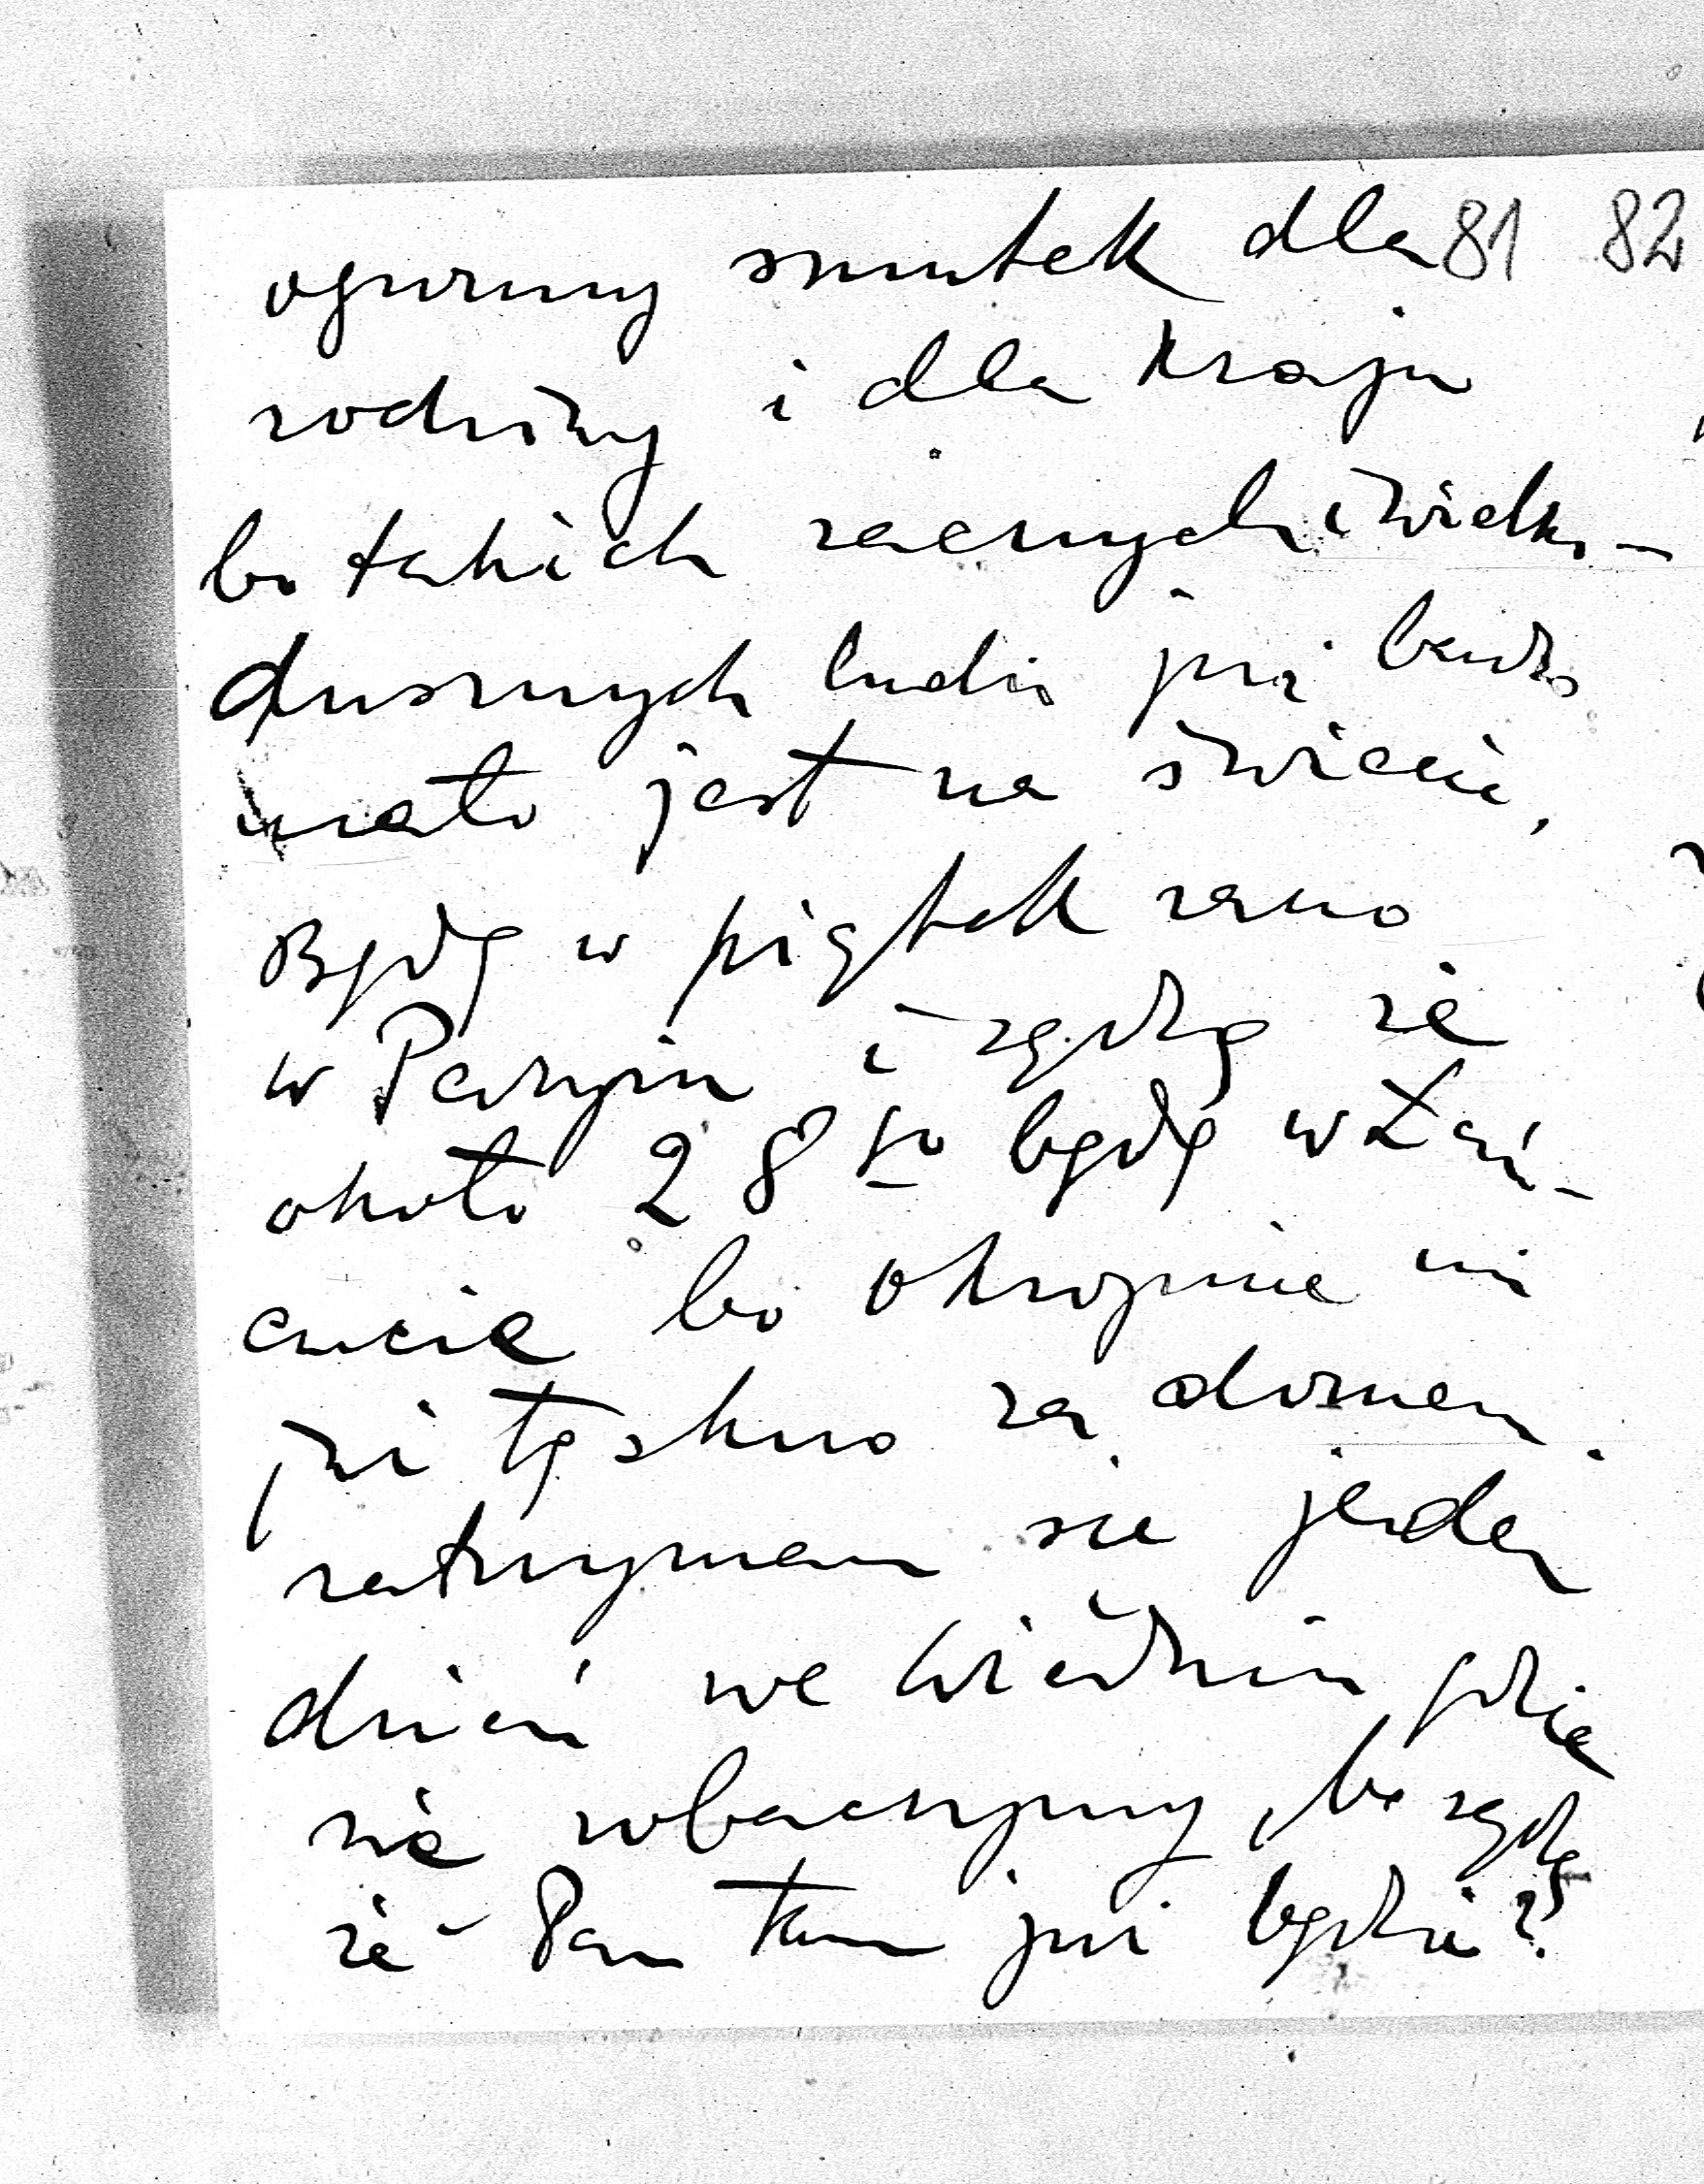 ogromny smutek dla 81 82
rodziny i dla Kraju
bo takich zacnych i wielko-
dusznych ludzi już bardzo
mało jest na świecie,
Będę w piątek rano
w Paryżu i sądzę że
około 28go będę w Łań-
cucie bo okropnie mi
już tęskno za domem.
zatrzymam sie jeden
dzień we Wiedniu gdzie
się zobaczymy, bo sądzę
że Pan tam już będzie?